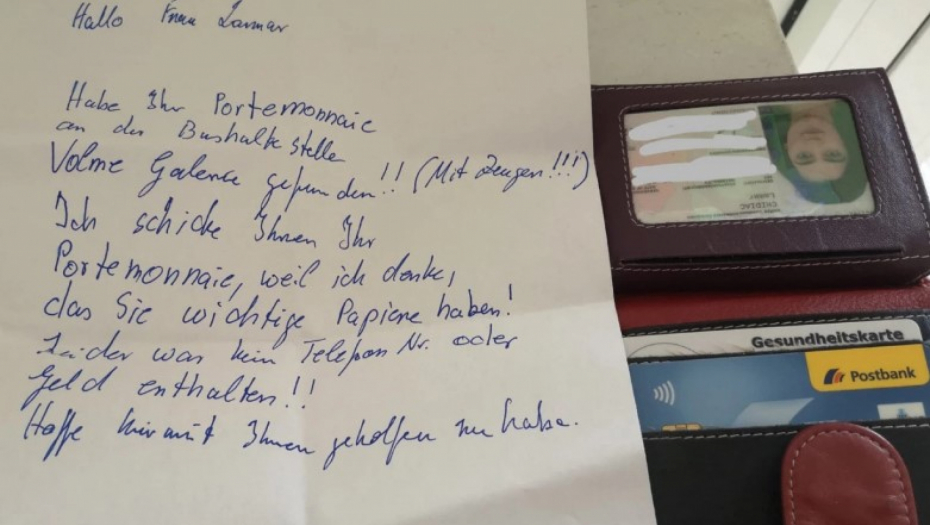 Hallo Frau Lamar
Habe Ihr Portemonnaie
an der Bushalte Stelle
Volme Galerie gefunden!! (Mit Zeugen!!!)
Ich schicke Ihnen Ihr
Portemonnaie, weil ich denke,
das Sie wichtige Papiere haben!
Leider war kein Telefon Nr. oder
Geld enthalten!!
Hoffe hiermit Ihnen geholfen zu habe.
CHIDIAC
Lamar
Gesundheitskarte
Postbank